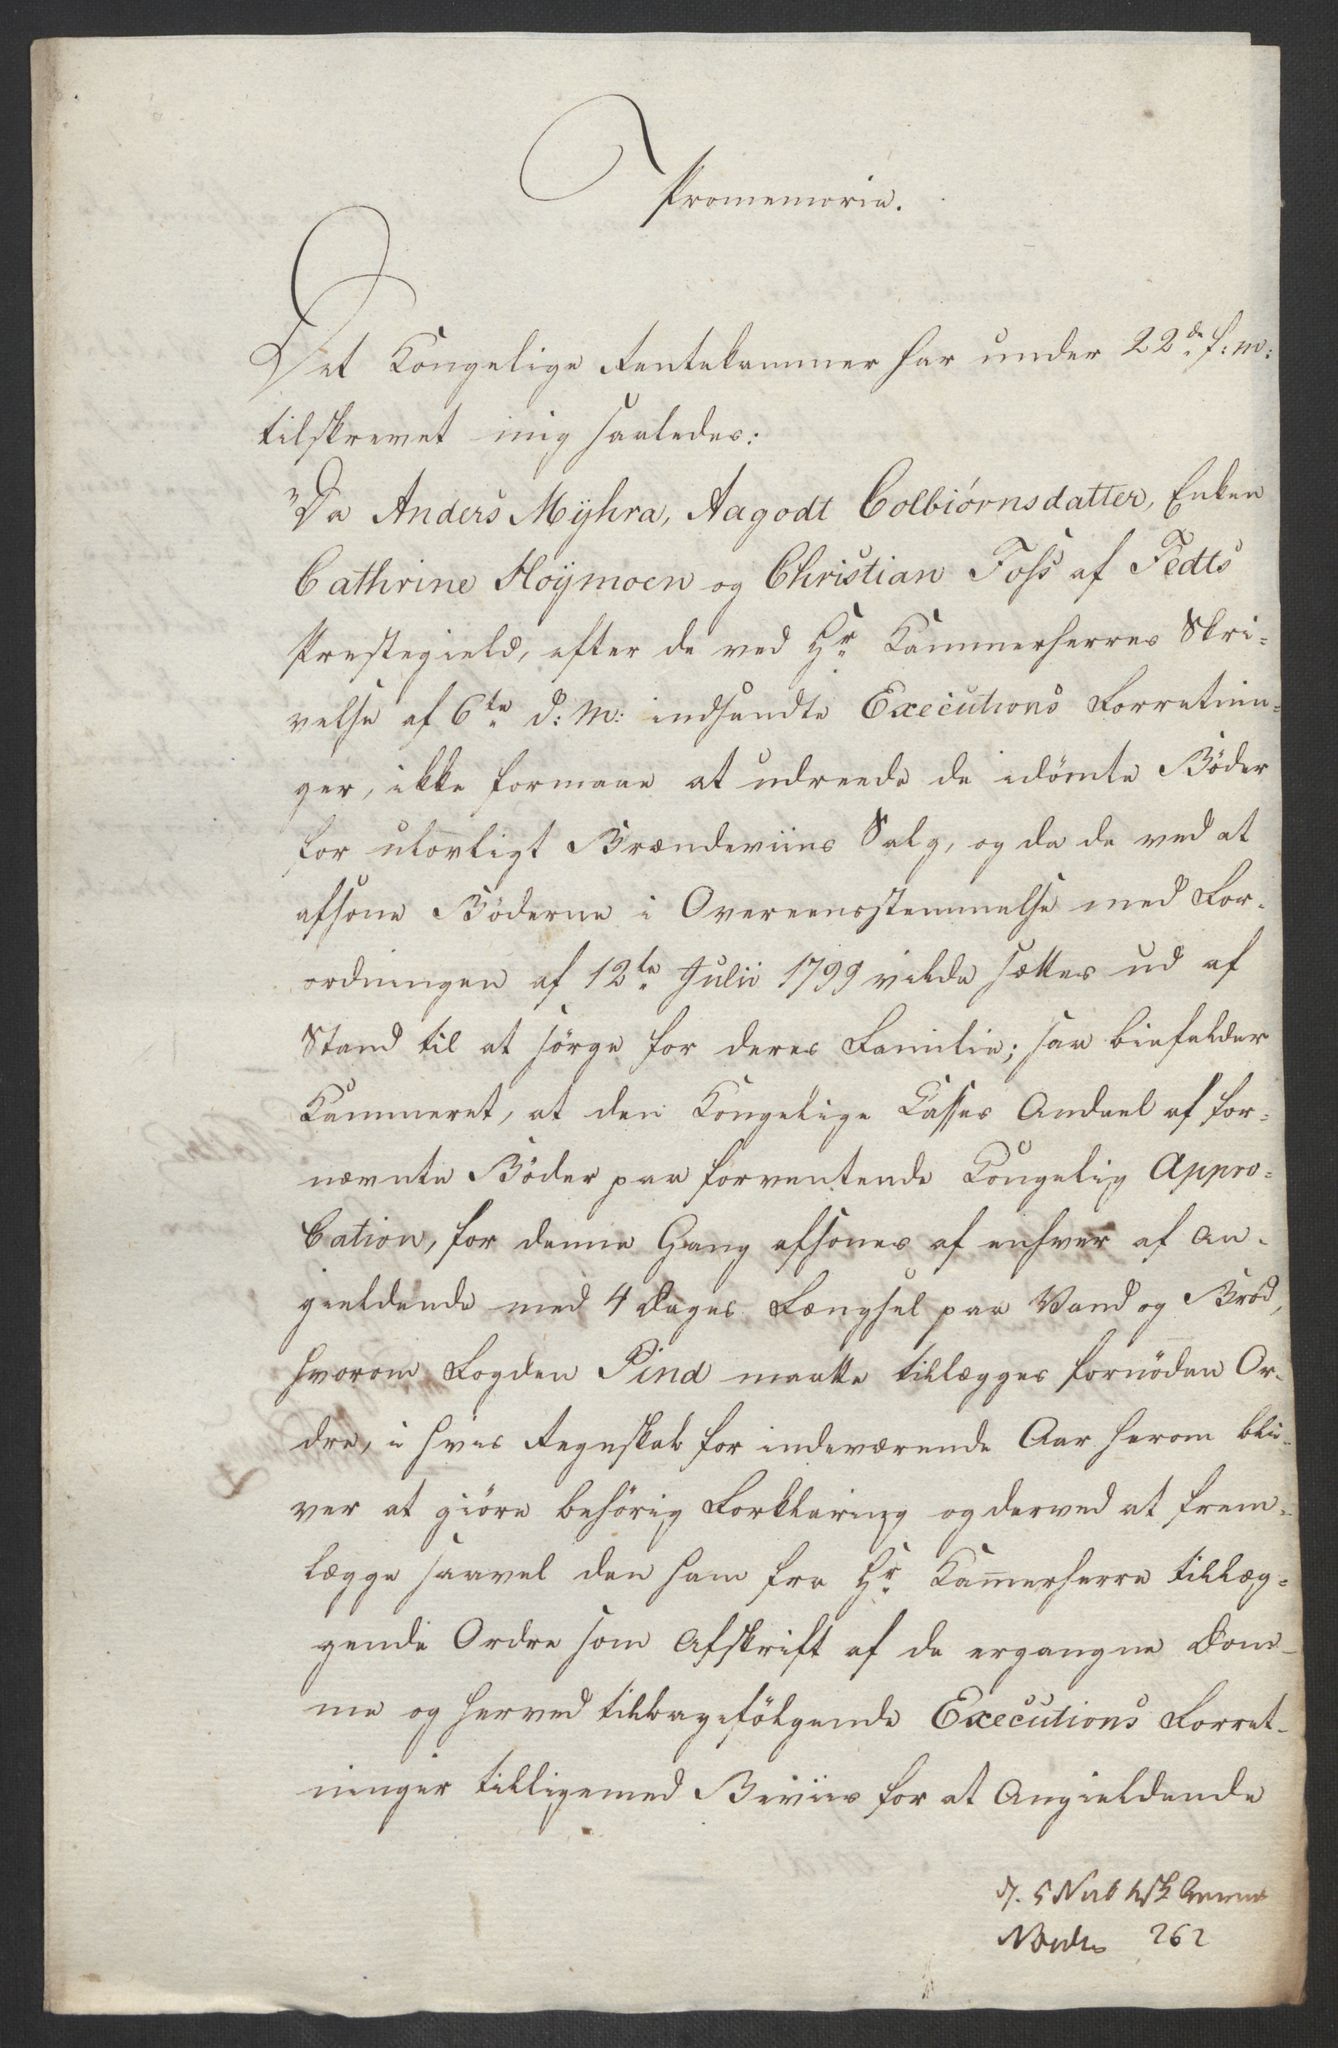 Promemoria.
Det Kongelige Rentekammer har under 22de f: m:
tilskrevet mig saaledes:
"Da Anders Mÿhra, Aagodt Colbiørnsdatter, Enken
Cathrine Høÿmoen og Christian Foss af Fedts
Præstegield, efter de ved Hr. Kammerherres Skri-
velse af 6te d: M: indsendte Executions Forretnin-
ger, ikke formaae at udreede de idömte Böder
for ulovligt Brændeviins Salg, og da de ved at
afsone Böderne i Overeensstemmelse med For-
ordningen af 12te Julii 1799 vilde sættes ud af
Stand til at sörge for deres Familie; saa biefalder
Kammeret, at den Kongelige Casses Andeel af for-
nævnte Böder paa forventende Kongelig Appro-
bation, for denne Gang afsones af enhver af An-
gieldende med 4 Dages Fængsel paa Vand og Bröd,
hvorom Fogden Pind maatte tillægges fornöden Or-
dre, i hvis Regnskab for indeværende Aar herom bli-
ver at giöre behörig Forklaring og derved at frem-
lægge saavel den ham fra Hr. Kamerherre tillæg-
gende Ordre som Afskrift af de ergangne Dom-
me og herved tilbagefölgende Executions Forret-
ninger tilligemed Beviis for at Angieldende
262